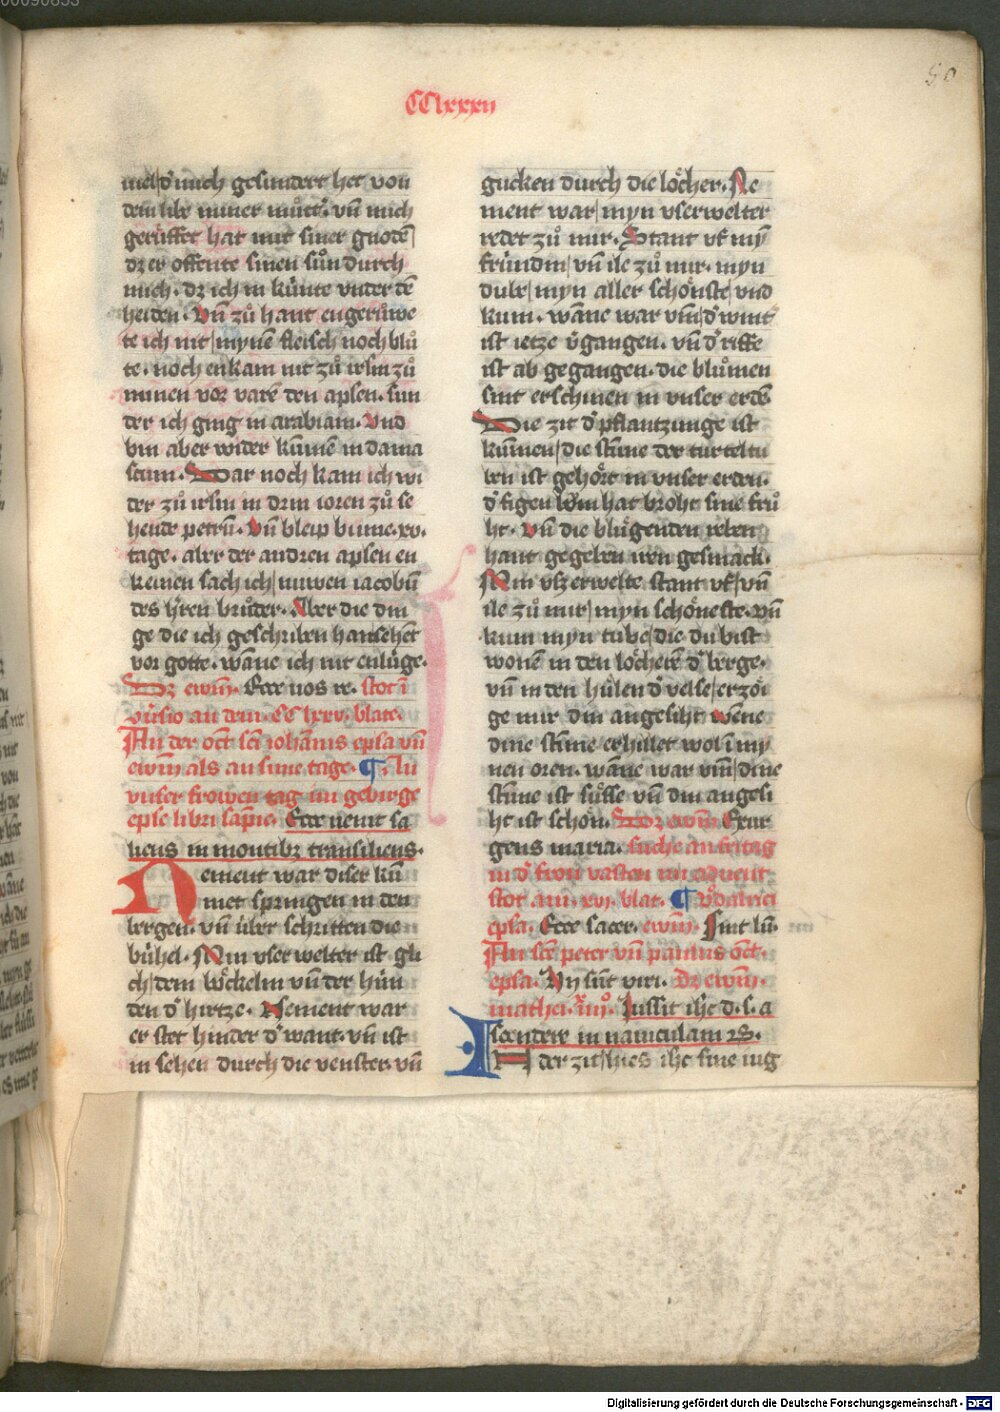 CClxxxii
50
mel d' mich gesundert het von
dem libe miner můtt'. vn̄ mich
gerüffet hat mit siner gnodē
dz er offente sinen sůn durch
mich. dz ich in künte vnter dē
heiden. Vn̄ zů hant engerůwe
te ich nit mynē fleisch noch blů
te. noch enkam nit zů irlm zů
minen vor varē den apleln. sun
der ich ging in arabiam. Vnd
bin aber wider kūmen in dama
scum. Dar noch kam ich wi
der zů irlm in drin ioren zů se
hende petrū. Vn̄ bleip bi ime. xv.
tage. aber der andren apleln en
keinen sach ich nuwen iacobū
des h'ren brůder. Aber die din
ge die ich geschriben han sehēt
vor gotte. wāne ich nit enlüge.
Dz ewm̄. Ecce nos re. stot ī
vn̄sio an dem. CClxxv. blate.
An der oct sc̄i ioham̄s epl'a vn̄
ewm̄ als an sime tage. ¶ An
vnser frowen tag im gebirge
epl'e libri sap̄ie. Ecce uenit sa
liens in montibz transiliens.
Nement war diser kū
met springen in den
bergen. vn̄ über schritten die
bühel. Min vser welter ist gli
ch dem böckelin vn̄ der hün
den d' hirtze. Nement war
er stet hinder d' want. vn̄ ist
in sehen durch die venster. vn̄
gucken durch die löcher. Ne
ment war myn vserwelter
redet zů mir. Stant vf mȳ
fründin vn̄ ile zů mir. myn
dube myn aller schönste vnd
kum. wāne war vm̄ d' wint'
ist ietze v'gangen. vn̄ d' riffe
ist ab gegangen. die blůmen
sint erschinen in vnser erdē.
Die zit d' pflantzunge ist
kūmen die stīme der turteltu
ben ist gehört in vnser erden.
d' figen bōm hat broht sine frü
ht. Vn̄ die blügenden reben
hant gegeben iren gesmack.
Min vsz erwelte stant vf vn̄
ile zů mir myn schöneste. vn̄
kum myn tube die du bist
wonē in den löcherē d' berge.
vn̄ in den hülen d' velse erzöi
ge mir din angesiht wēne
dine stīme erhillet wol ī my
nen oren. wāne war vm̄ dine
stīme ist süsse vn̄ din angesi
ht ist schön. Daz ewm̄ Exur
gens maria. suche an fritag
in d' fron vasten im aduent
stot am. xvi. blat. ¶ Vdalrici
epl'a. Ecce sacer. ewm̄. Sint lū.
An sc̄e peter vn̄ paulus oct.
epl'a. Hij sūt viri. Dz ewm̄.
mathei. xiiij°. Jussit ihc d. s. a
scendere in nauiculam 2c.
IN der zit hies ihc sine iug
Digitalisierung gefördert durch die Deutsche Forschungsgemeinschaft - DFG